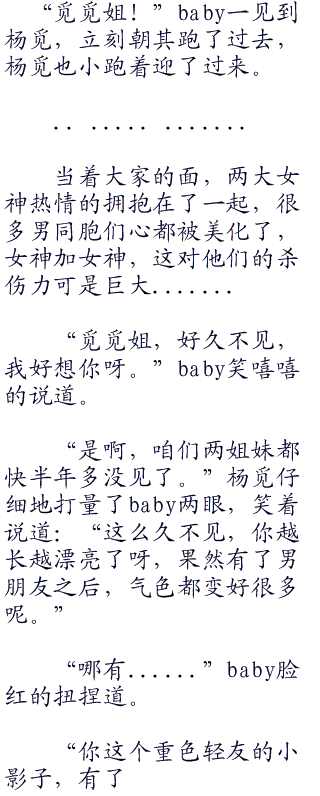 “觅觅姐！”baby一见到
杨觅，立刻朝其跑了过去，
杨觅也小跑着迎了过来。
.. ..... .......
当着大家的面，两大女
神热情的拥抱在了一起，很
多男同胞们心都被美化了，
女神加女神，这对他们的杀
伤力可是巨大.......
“觅觅姐，好久不见，
我好想你呀。”baby笑嘻嘻
的说道。
“是啊，咱们两姐妹都
快半年多没见了。”杨觅仔
细地打量了baby两眼，笑着
说道：“这么久不见，你越
长越漂亮了呀，果然有了男
朋友之后，气色都变好很多
呢。”
“哪有......”baby脸
红的扭捏道。
“你这个重色轻友的小
影子，有了